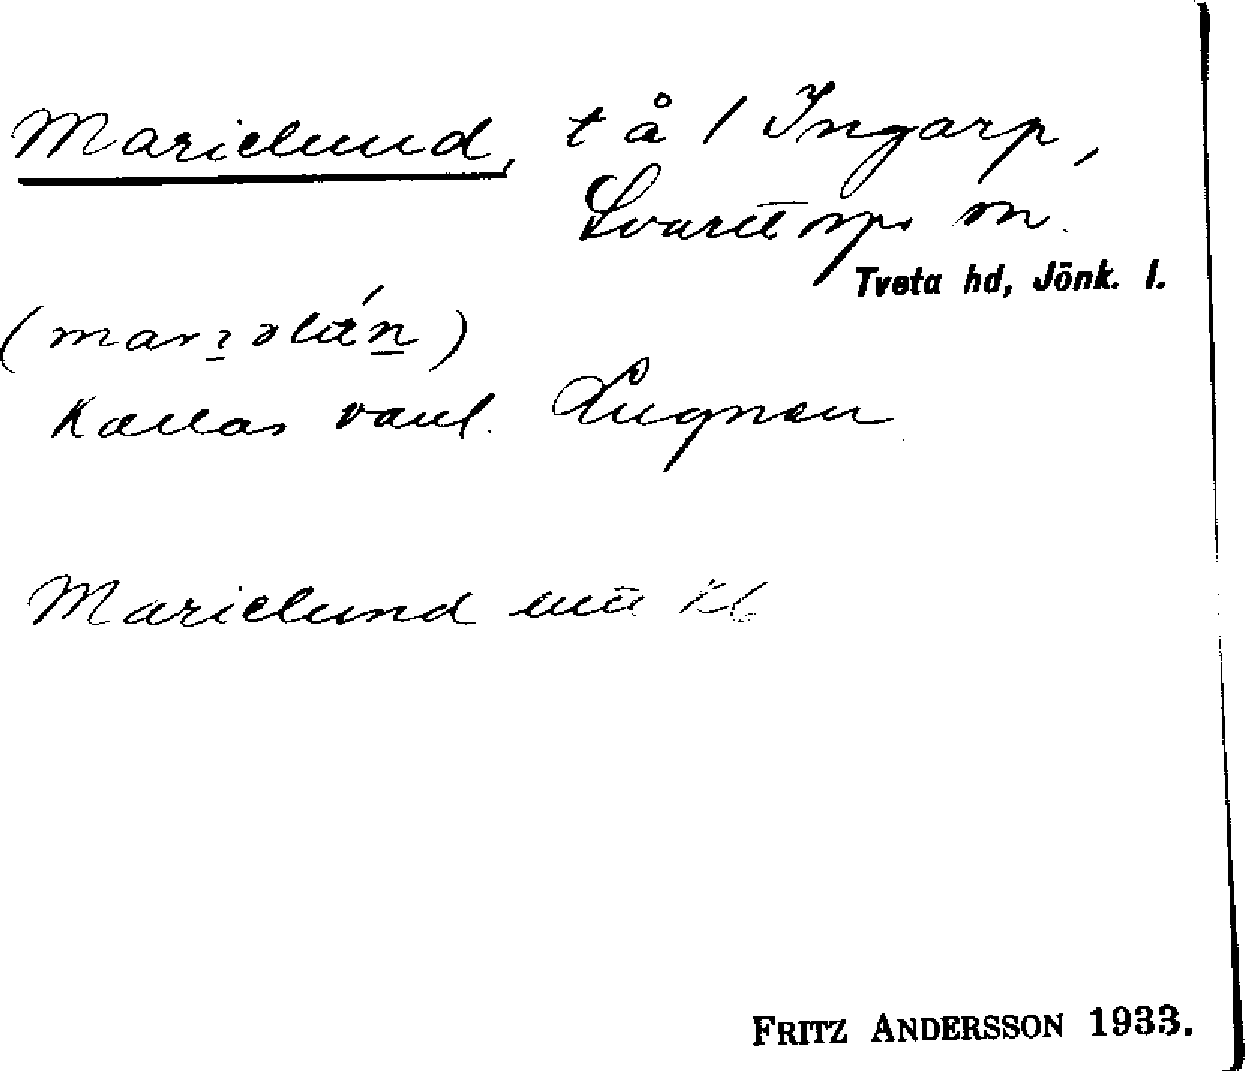 Marielund, t å / Ingarp,
Svarttorps sn.
Tveta hd, Jönk. l.
Kallas vanl. Lugnen
Marielund
FRITZ ANDERSSON 1933.